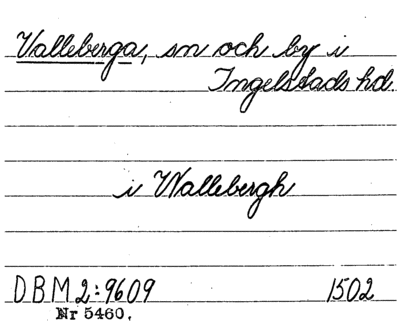 Valleberga, sn och by i
Ingelstads hd.
i Wallebergh
DBM 2:9609 1502
Nr 5460.